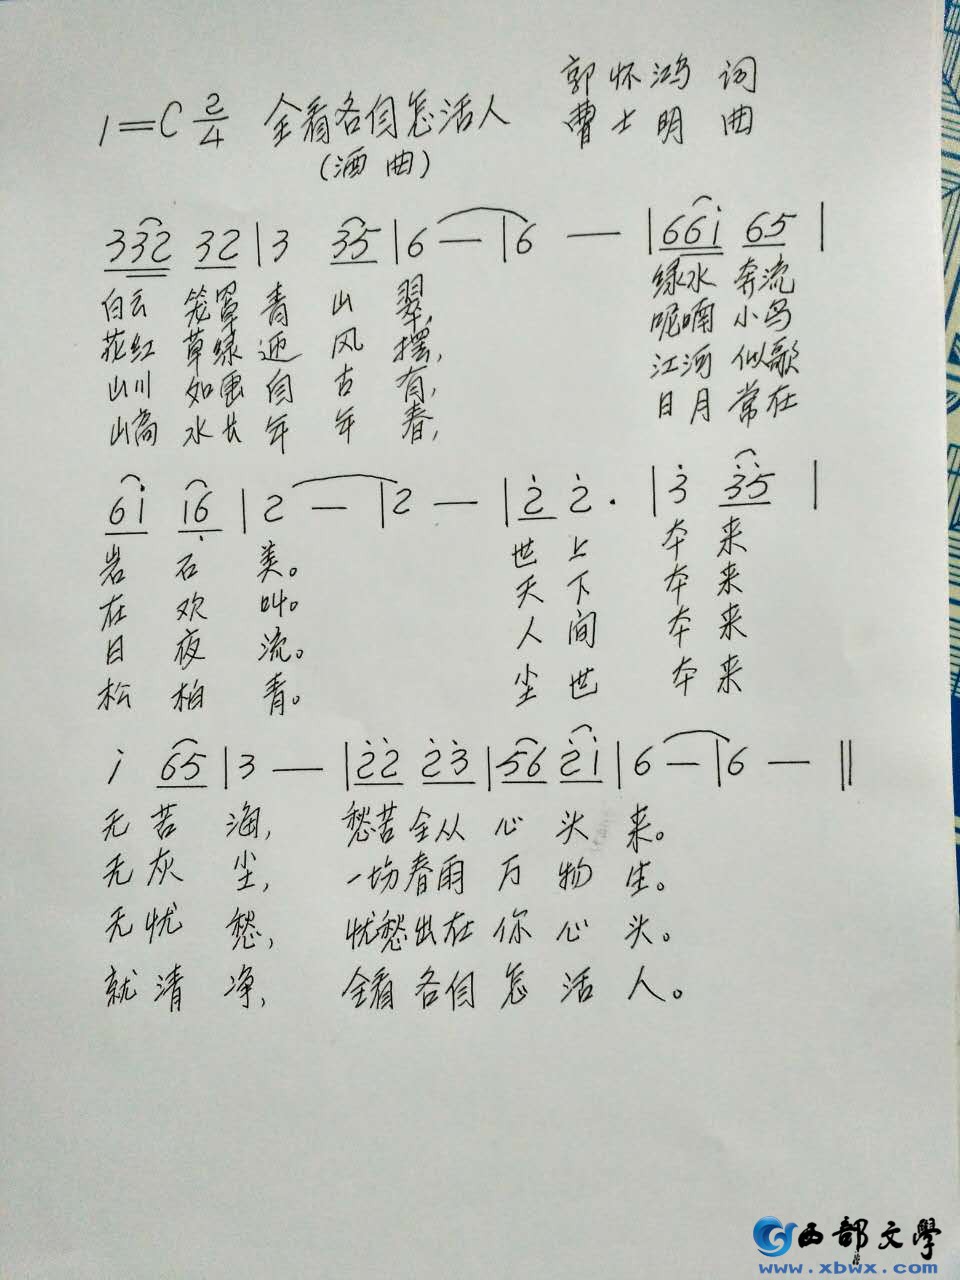 1=C 2/4 全看各自怎活人 郭怀鸿 词
(酒曲) 曹士明 曲
332 32 | 3 35 | 6 — | 6 — | 66i 65 |
白云 笼罩 青 山 翠, 绿水 奔流
花红 草绿 迎 风 摆, 呢喃 小鸟
山川 如画 自 古 有, 江河 似歌
山高 水长 年 年 春, 日月 常在
6i 16 | 2 — | 2 — | 2 2. | 3 35 |
岩 石 美。 世 上 本 来
在 欢 叫。 天 下 本 来
日 夜 流。 人 间 本 来
松 柏 青。 尘 世 本 来
i 65 | 3 — | 22 23 | 56 2i | 6 — | 6 — ||
无 苦 海, 愁苦 全从 心 头 来。
无 灰 尘, 一场 春雨 万 物 生。
无 忧 愁, 忧愁 出在 你 心 头。
就 清 净, 全看 各自 怎 活 人。
西部文學
www.xbwx.com